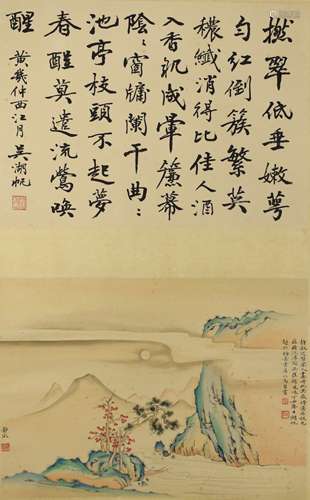 撚翠低垂嫩萼
勻紅倒簇繁英
穠纖消得比佳人酒
入香肌成暈簾幕
陰〻窗牖闌干曲〻
池亭枝頭不起夢
春酲莫遣流鶯喚
醒
黃幾仲西江月 吳湖帆
靜淑